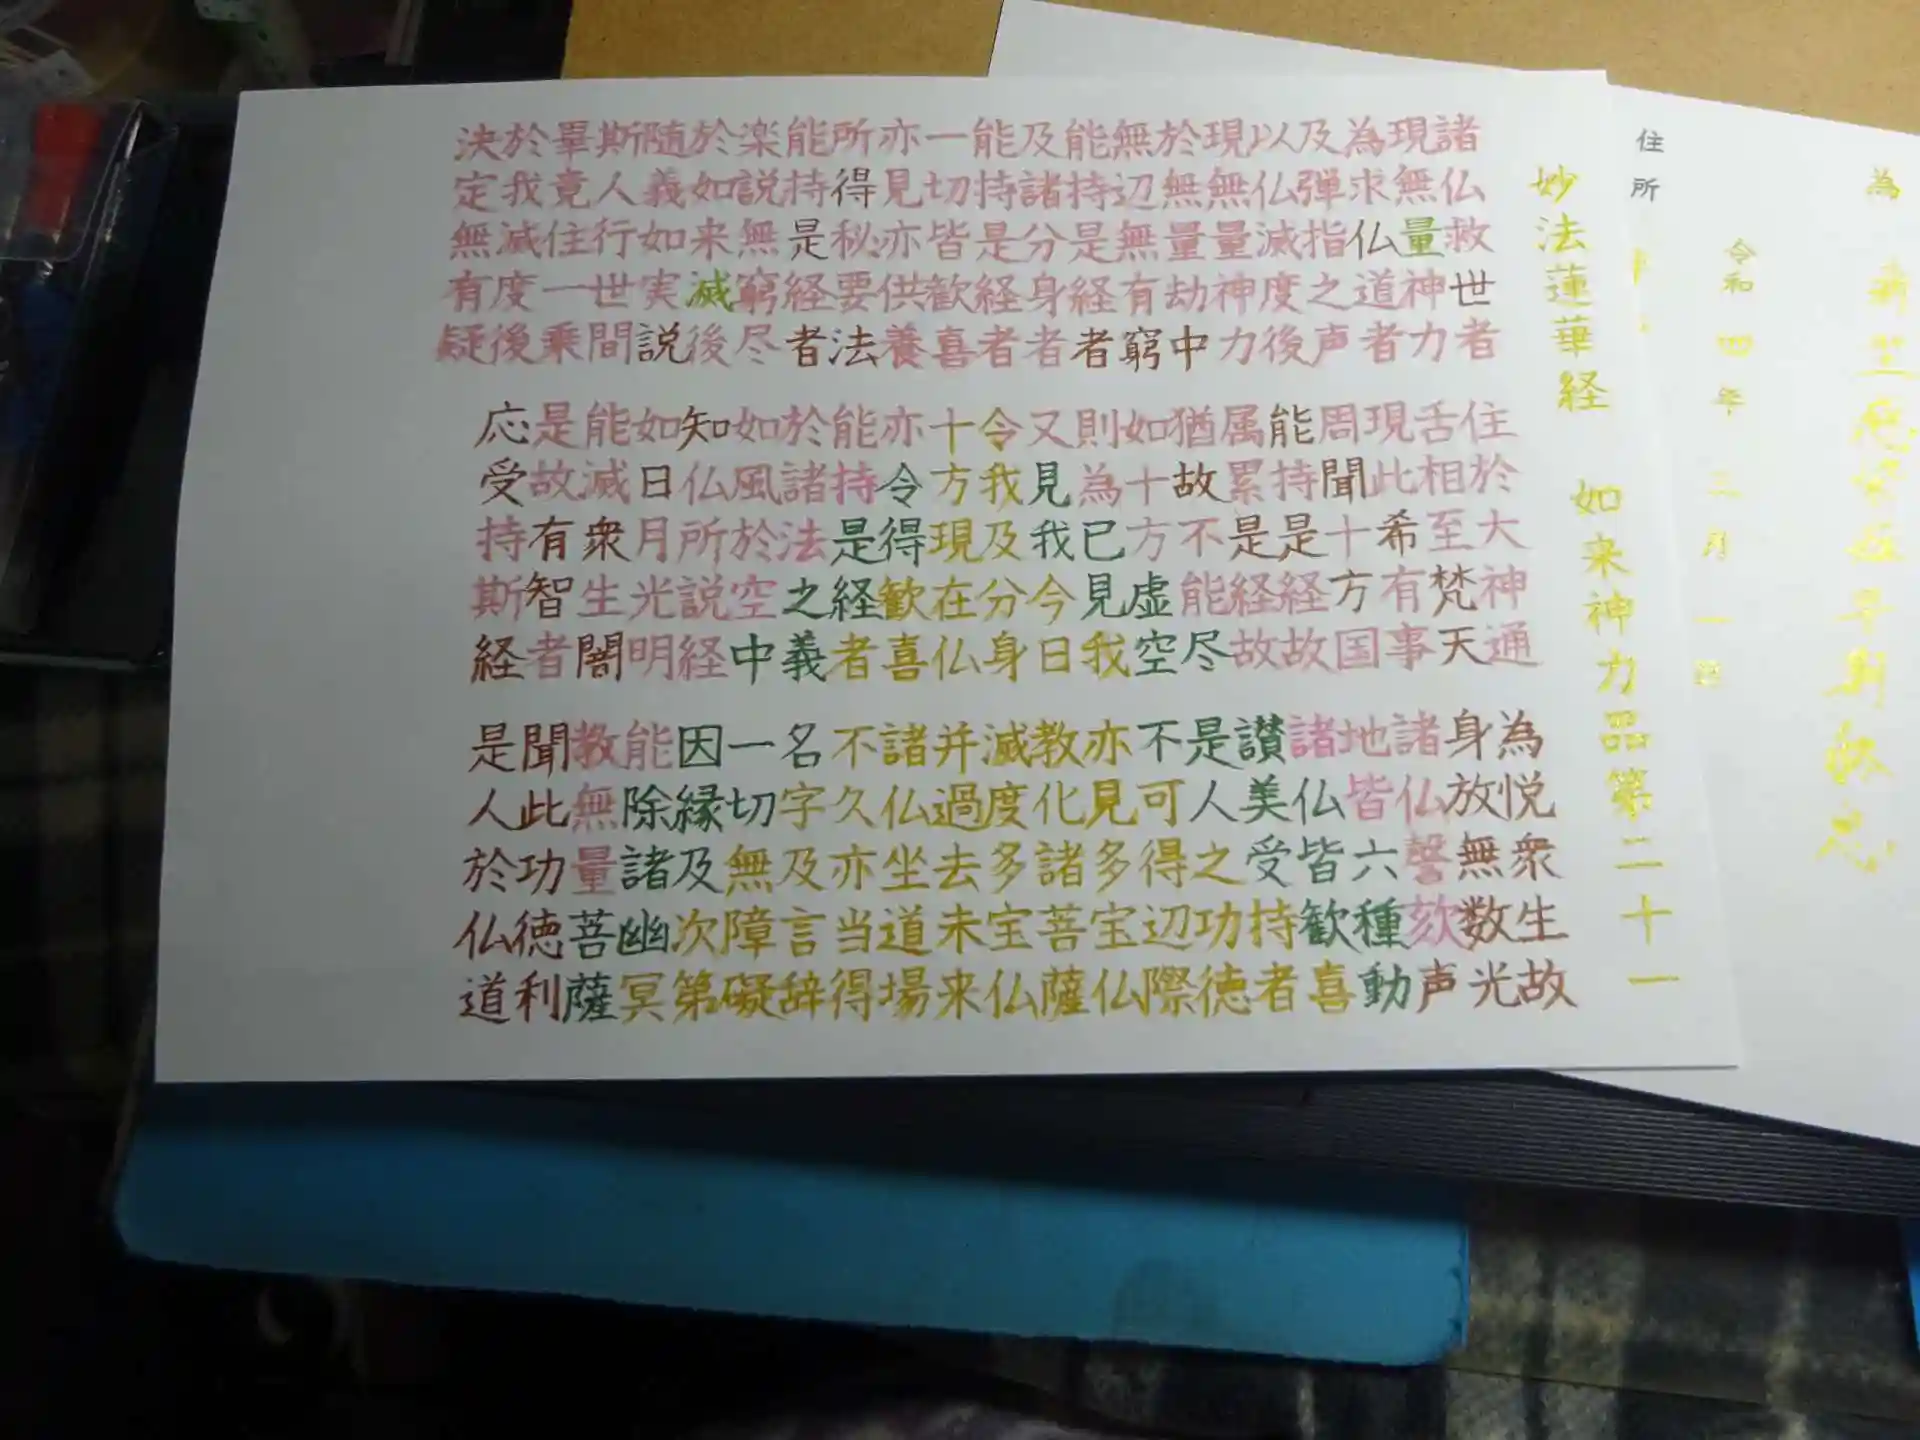 為
令和四年三月一日
住所
妙法蓮華経 如来神力品第二十一
諸仏救世者 住於大神通 為悦衆生故
現無量神力 舌相至梵天 身放無数光
為求仏道者 現此希有事 諸仏謦欬声
及弾指之声 周聞十方国 地皆六種動
以仏滅度後 能持是経故 諸仏皆歓喜
現無量神力 属累是経故 讃美受持者
於無量劫中 猶故不能尽 是人之功徳
無辺無有窮 如十方虚空 不可得辺際
能持是経者 則為已見我 亦見多宝仏
及諸分身者 又見我今日 教化諸菩薩
能持是経者 令我及分身 滅度多宝仏
一切皆歓喜 十方現在仏 并過去未来
亦見亦供養 亦令得歓喜 諸仏坐道場
所得秘要法 能持是経者 不久亦当得
能持是経者 於諸法之義 名字及言辞
楽説無窮尽 如風於空中 一切無障礙
於如来滅後 知仏所説経 因縁及次第
随義如実説 如日月光明 能除諸幽冥
斯人行世間 能滅衆生闇 教無量菩薩
畢竟住一乗 是故有智者 聞此功徳利
於我滅度後 応受持斯経 是人於仏道
決定無有疑